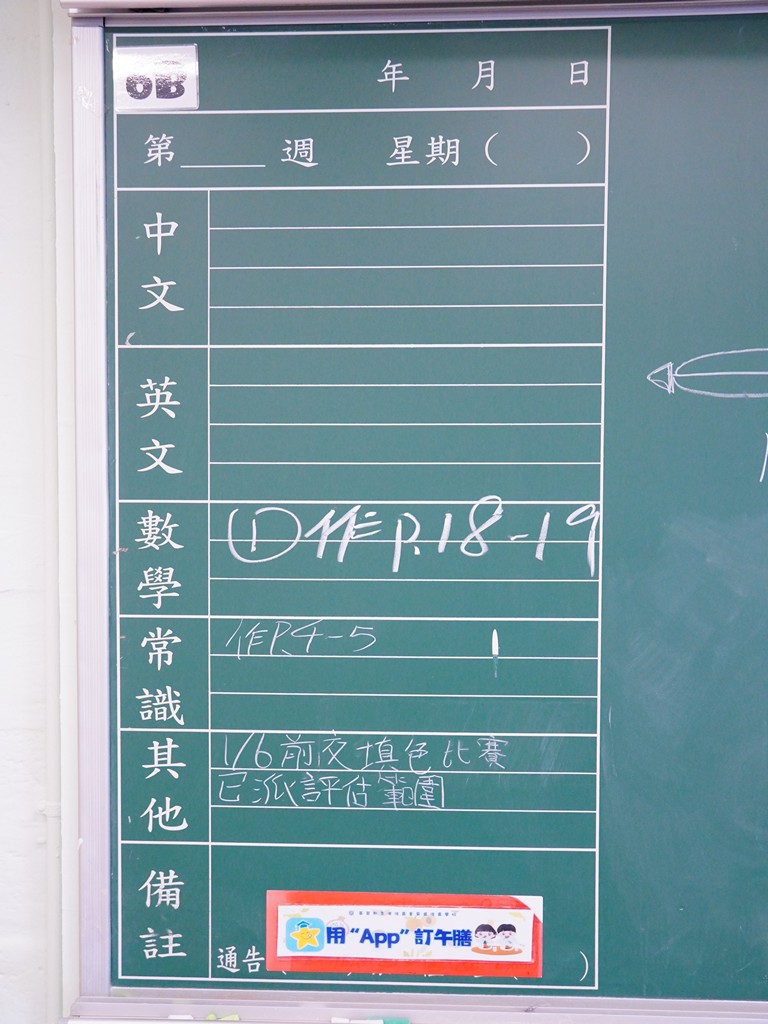 6B
年 月 日
第____週 星期( )
中文
英文
數學
①作P.18-19
常識
作P.4-5
其他
1/6前交填色比賽
已派評估範圍
備註
用“App”訂午膳
通告( )